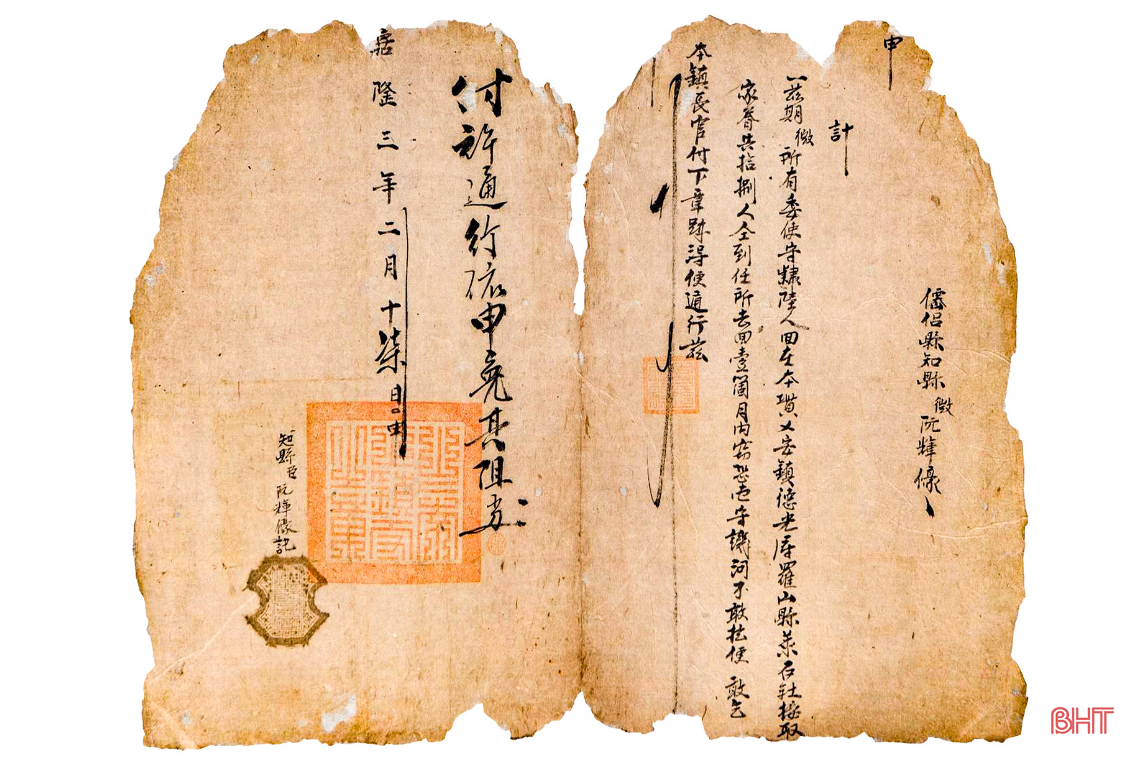 申
僊侶縣知縣微阮輝㒟
計
一茲期微所有委使守隸陸人回在本貫乂安鎮德光府羅山縣萊石社接取
家眷共拾捌人仝到任所去回壹箇月內竊恐巡守譏河不敢拔便敢乞
本鎮長官付下章跡得便通行茲
付許通行依申毋其阻当
嘉隆三年二月十柒日申
知縣臣阮輝㒟記
BHT